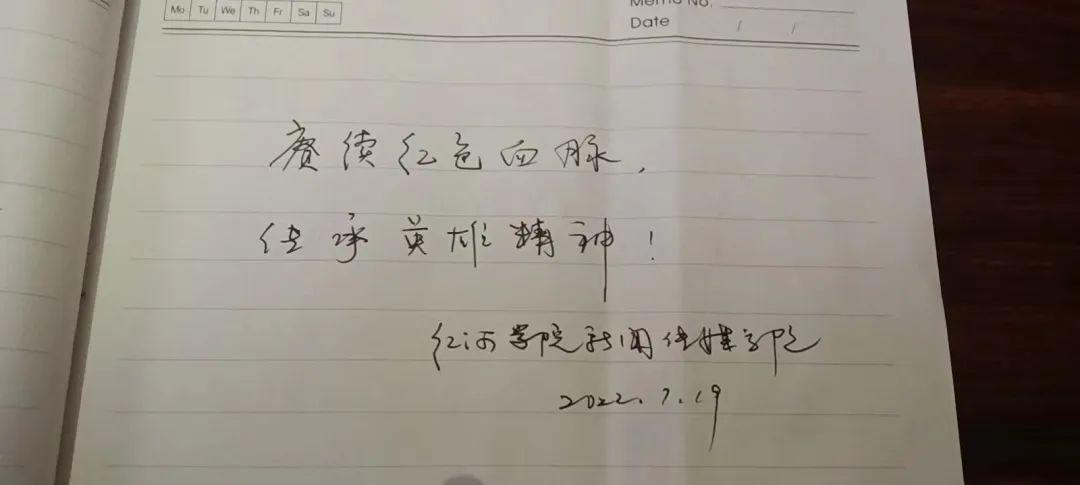 Mo Tu We Th Fr Sa Su
Memo No.
Date / /
赓续红色血脉，
传承英雄精神！
红河学院新闻传媒学院
2022.7.19